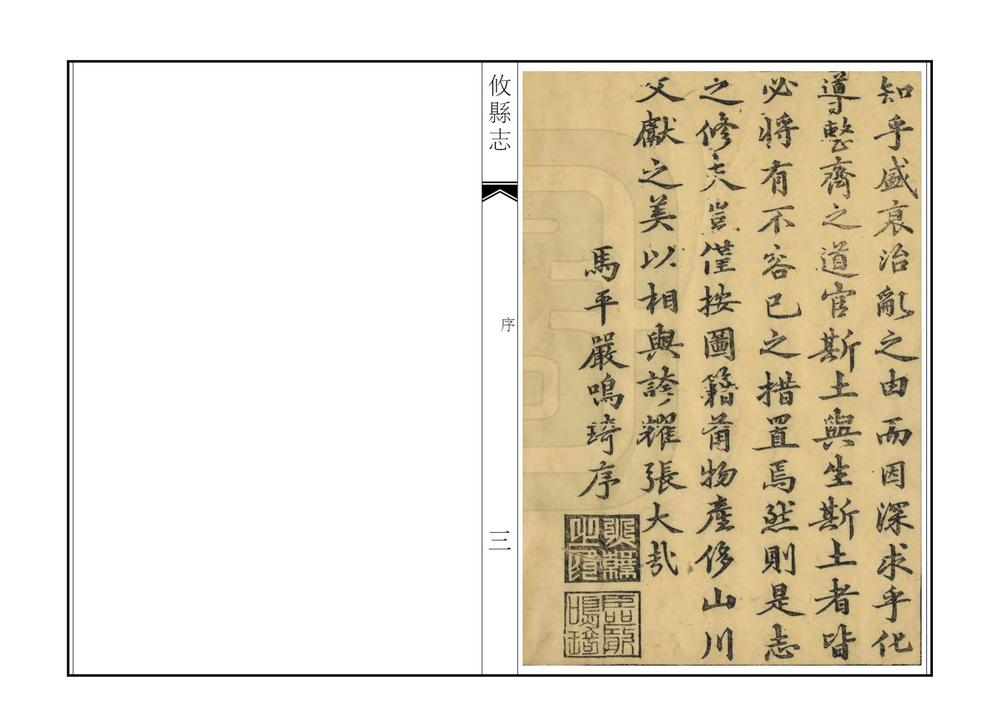 知乎盛衰治亂之由而因深求乎化
導整齊之道官斯土與生斯土者皆
必將有不容已之措置焉然則是志
之修夫豈僅按圖籍莆物產侈山川
文獻之美以相與誇耀張大哉
馬平嚴鳴琦序
攸縣志
序
三